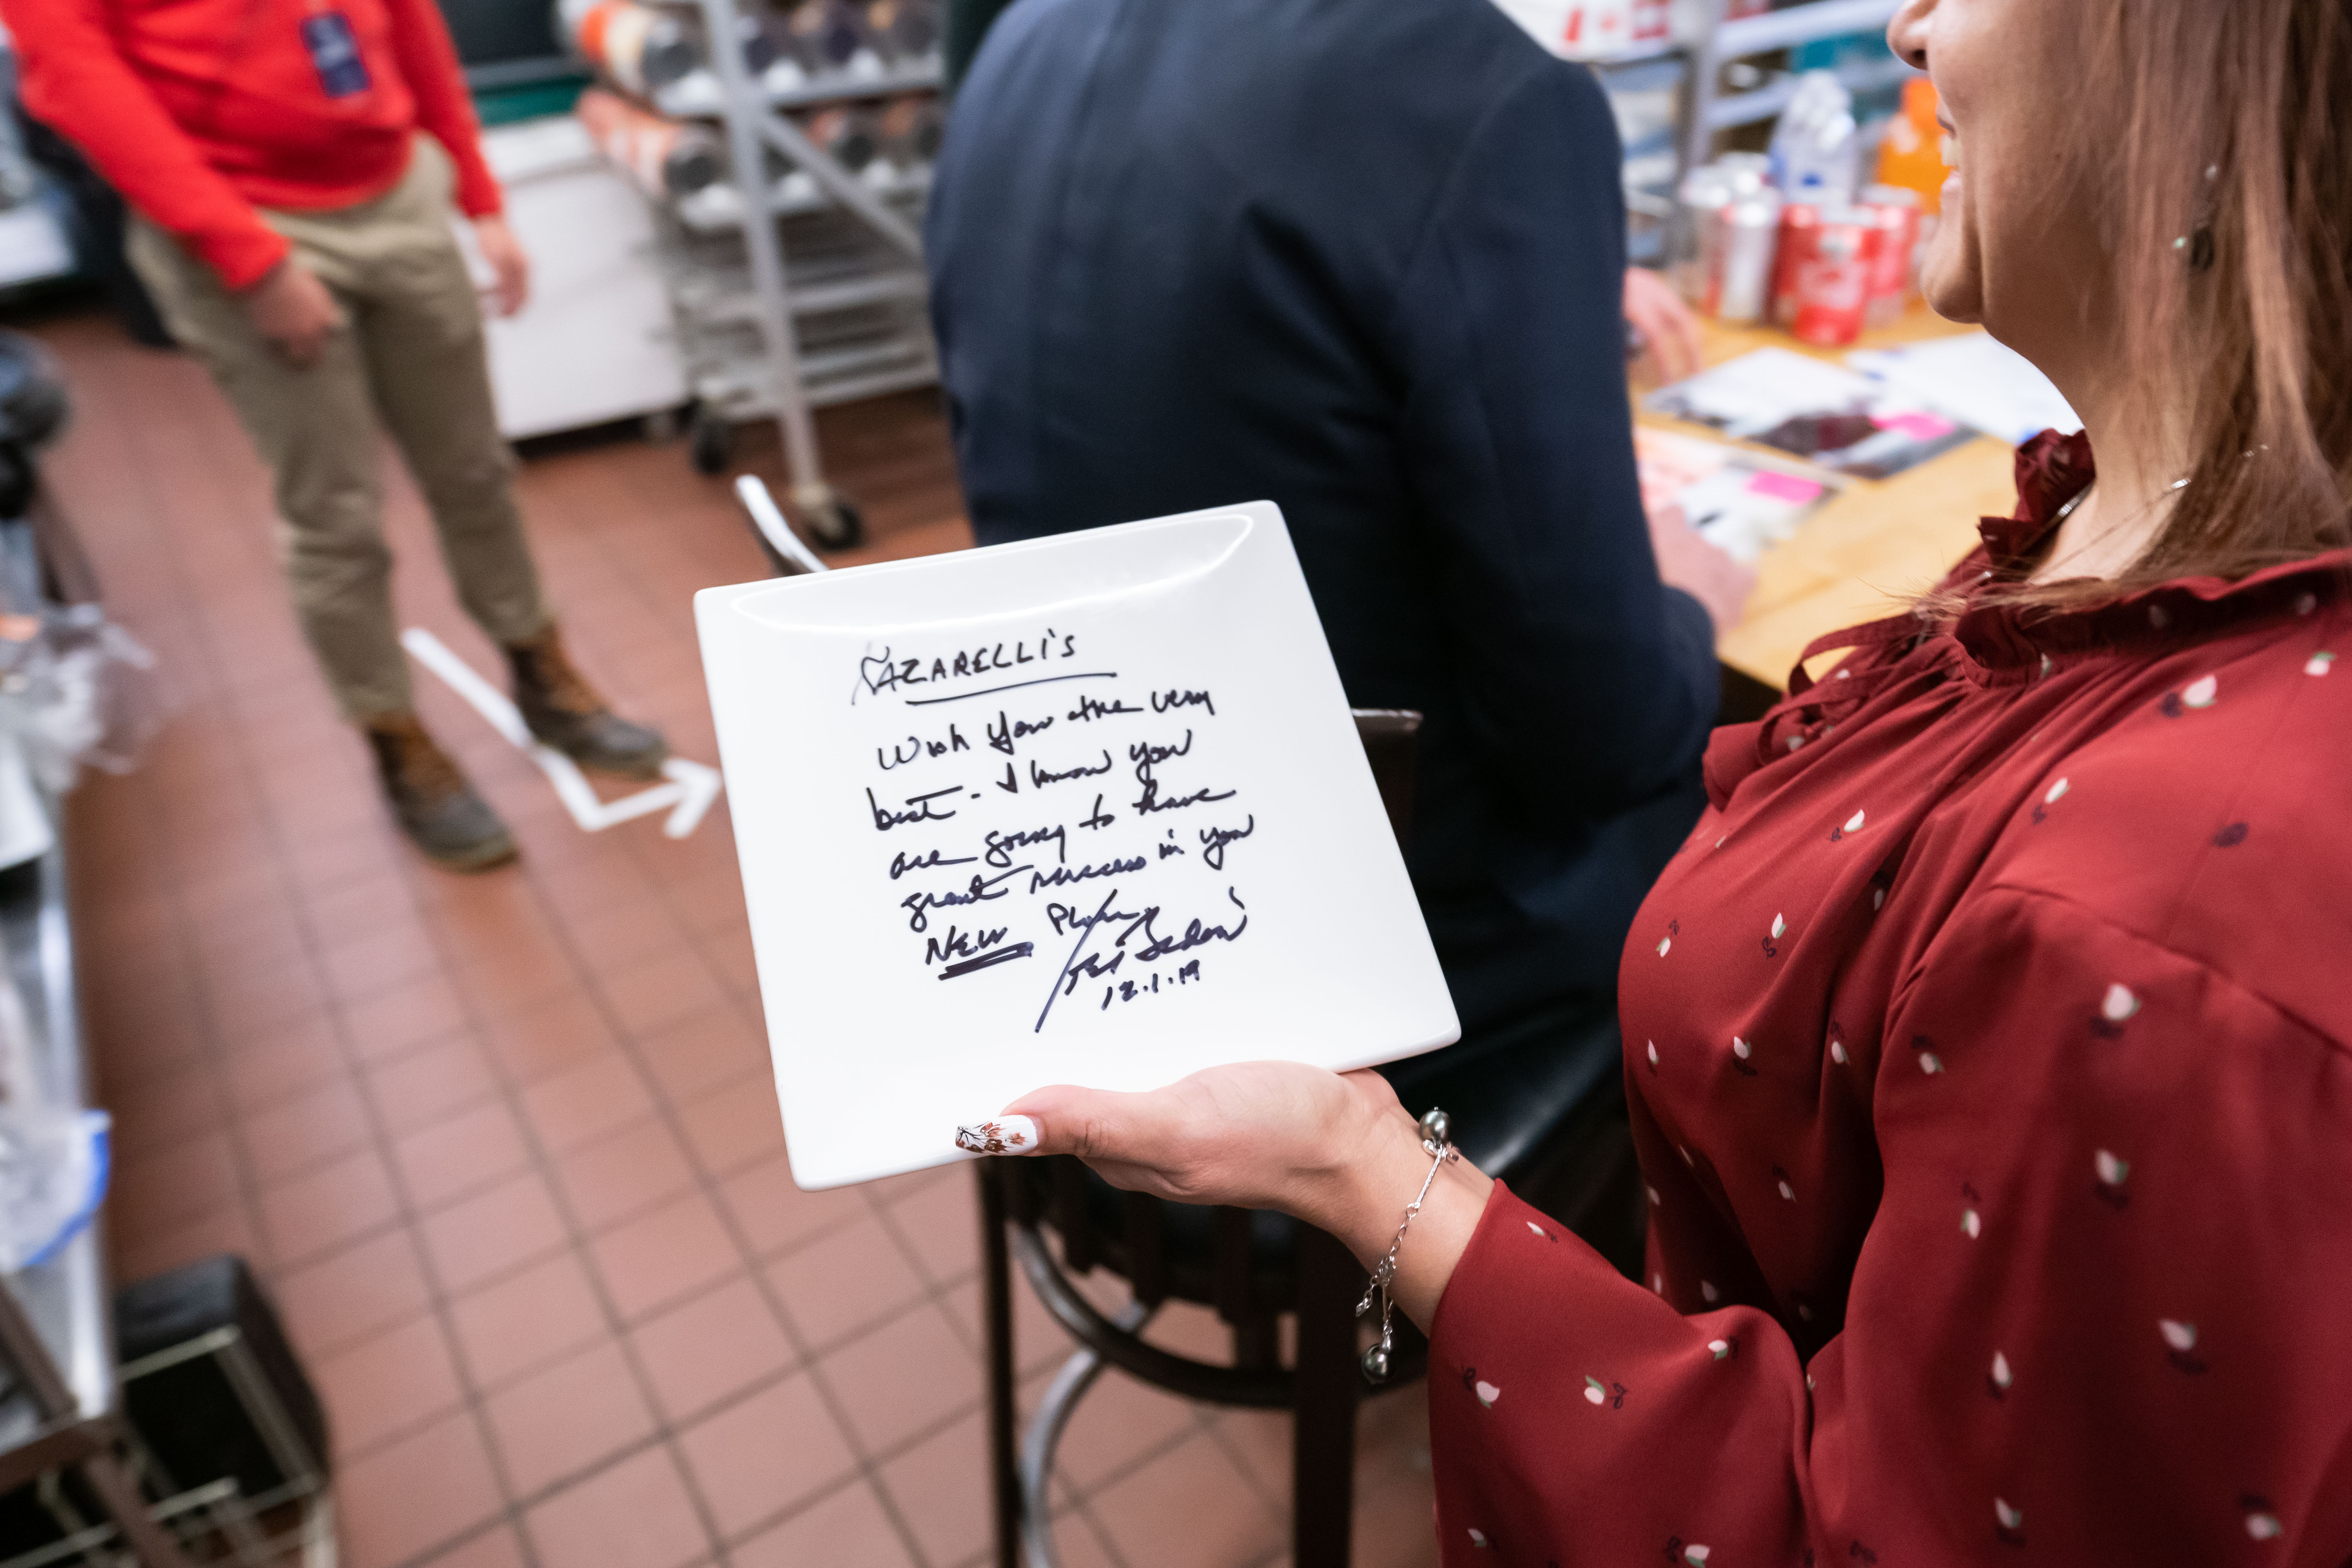 NAZARELLI'S
Wish you the very
best - I know you
are going to have
great success in your
NEW Place
12.1.19